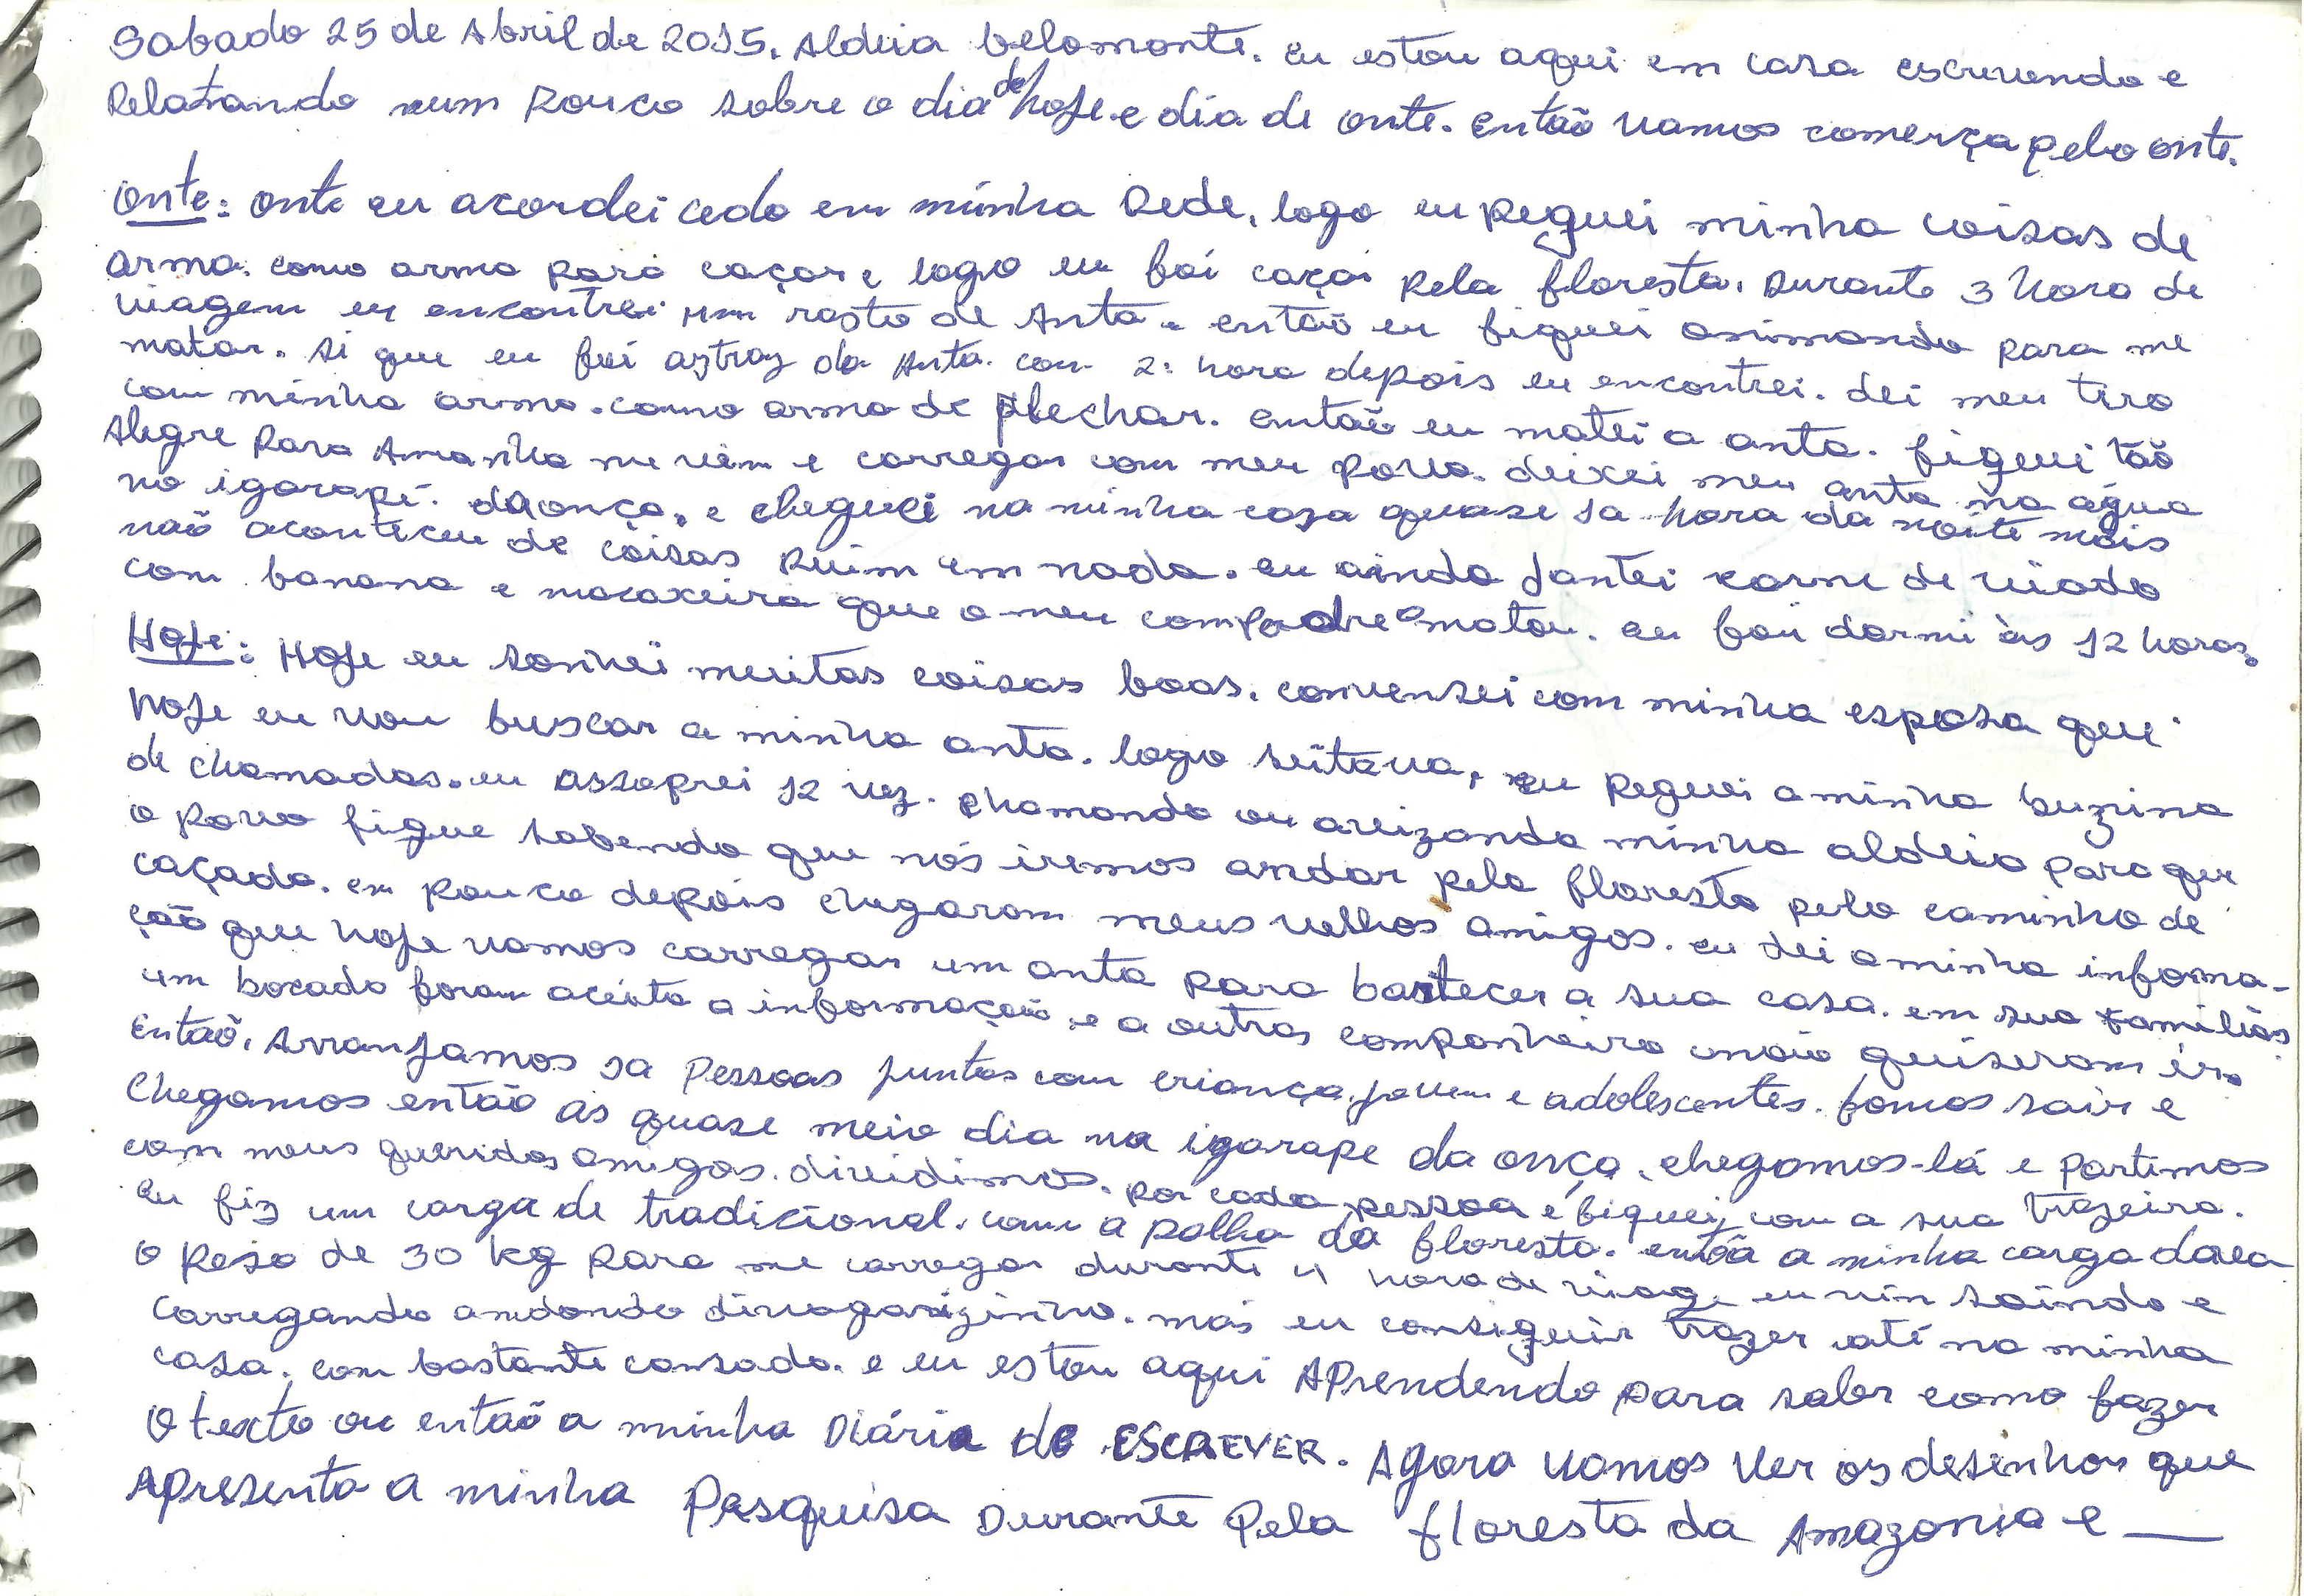 Sabado 25 de Abril de 2015. Aldeia belomonte. eu estou aqui em casa escrevendo e
Relatando um Pouco sobre o dia de hoje. e dia de onte. então vamos comerça pelo onte.
onte: onte eu acordei cedo em minha Rede, logo eu peguei minha coisas de
arma. como arma para caçar e logo eu foi caçai pela floresta. Durante 3 hora de
viagem eu encontrei um rasto de Anta. então eu fiquei animando para me
matar. si que eu foi aztraz da Anta. com 2: hora depois eu encontrei. dei meu tiro
com minha arma. como arma de flechar. então eu matei a anta. fiquei tão
Alegre para Amanhã me vem e carregar com meu povo. deixei meu anta na água
no igarapé. da onça, e cheguei na minha casa quase 1a hora da noite mais
não aconteceu de coisas Ruim em nada. eu ainda jantei carne de viado
com banana e macaxeira que o meu compadre matou. eu foi dormi às 12 horas.
Hoje: Hoje eu sonhei muitas coisas boas. conversei com minha esposa que
hoje eu vou buscar a minha anta. logo seitava, eu peguei a minha buzina
de chamadas. eu assoprei 12 vez. chamando ou avizando minha aldeia para que
o povo fique sabendo que nós iremos andar pela floresta pelo caminho de
caçada. em pouco depois chegaram meus velhos amigos. eu dei a minha informa-
ção que hoje vamos carregar um anta para bastecer a sua casa. em sua familias.
um bocado foram aceita a informação e a outras companheiro não quiseram ir.
Então, Arranjamos 1a Pessoas juntos com criança, jovem e adolescentes. fomos sair e
Chegamos então as quase meio dia na igarape da onça, chegamos-lá e partimos
com meus queridos amigos. dividimos. por cada pessoa e fiquei com a sua trazeira.
Eu fiz um carga de tradicional. com a palha da floresta. então a minha carga dava
o peso de 30 kg para me carregar durante 4 hora de viage eu vin saindo e
carregando andando divagarizinho. mas eu conseguir trazer até na minha
casa. com bastante cansado. e eu estou aqui APrendendo para saber como fazer
O texto ou então a minha Diária de ESCREVER. Agora vamos ver os desenhos que
Apresenta a minha Pesquisa Durante Pela floresta da Amazonia e —